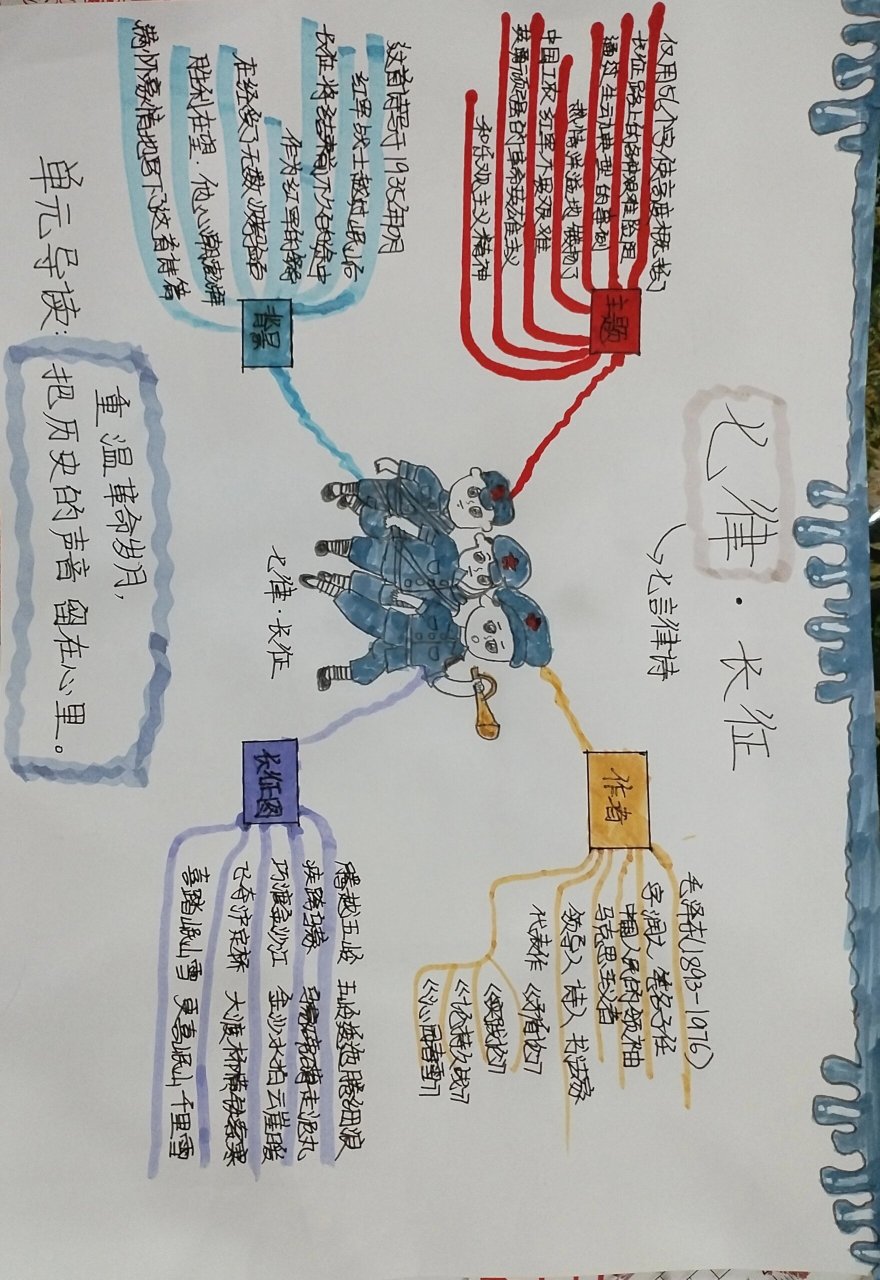 七律·长征
七言律诗
主题
仅用56个字使高度概括了
长征路上的各种艰难险阻
通过生动典型的事例
热情洋溢地赞扬了
中国工农红军不畏艰难
英勇顽强的革命英雄主义
和乐观主义精神
作者
毛泽东(1893-1976)
字润之 笔名子任
中国人民的领袖
马克思主义者
领导人 诗人 书法家
代表作 《矛盾论》
《实践论》
《论持久战》
《沁园春雪》
背景
这首诗写于1935年10月
红军战士越过岷山后
长征将结束前不久的途中
作为红军的领
在经受了无数次考验后
胜利在望·他心潮澎湃
满怀豪情地写下了这首诗篇
七律·长征
长征图
腾越五岭 五岭逶迤腾细浪
疾跨乌蒙 乌蒙磅礴走泥丸
巧渡金沙江 金沙水拍云崖暖
飞夺泸定桥 大渡桥横铁索寒
喜踏岷山雪 更喜岷山千里雪
单元导读:
重温革命岁月,
把历史的声音留在心里。